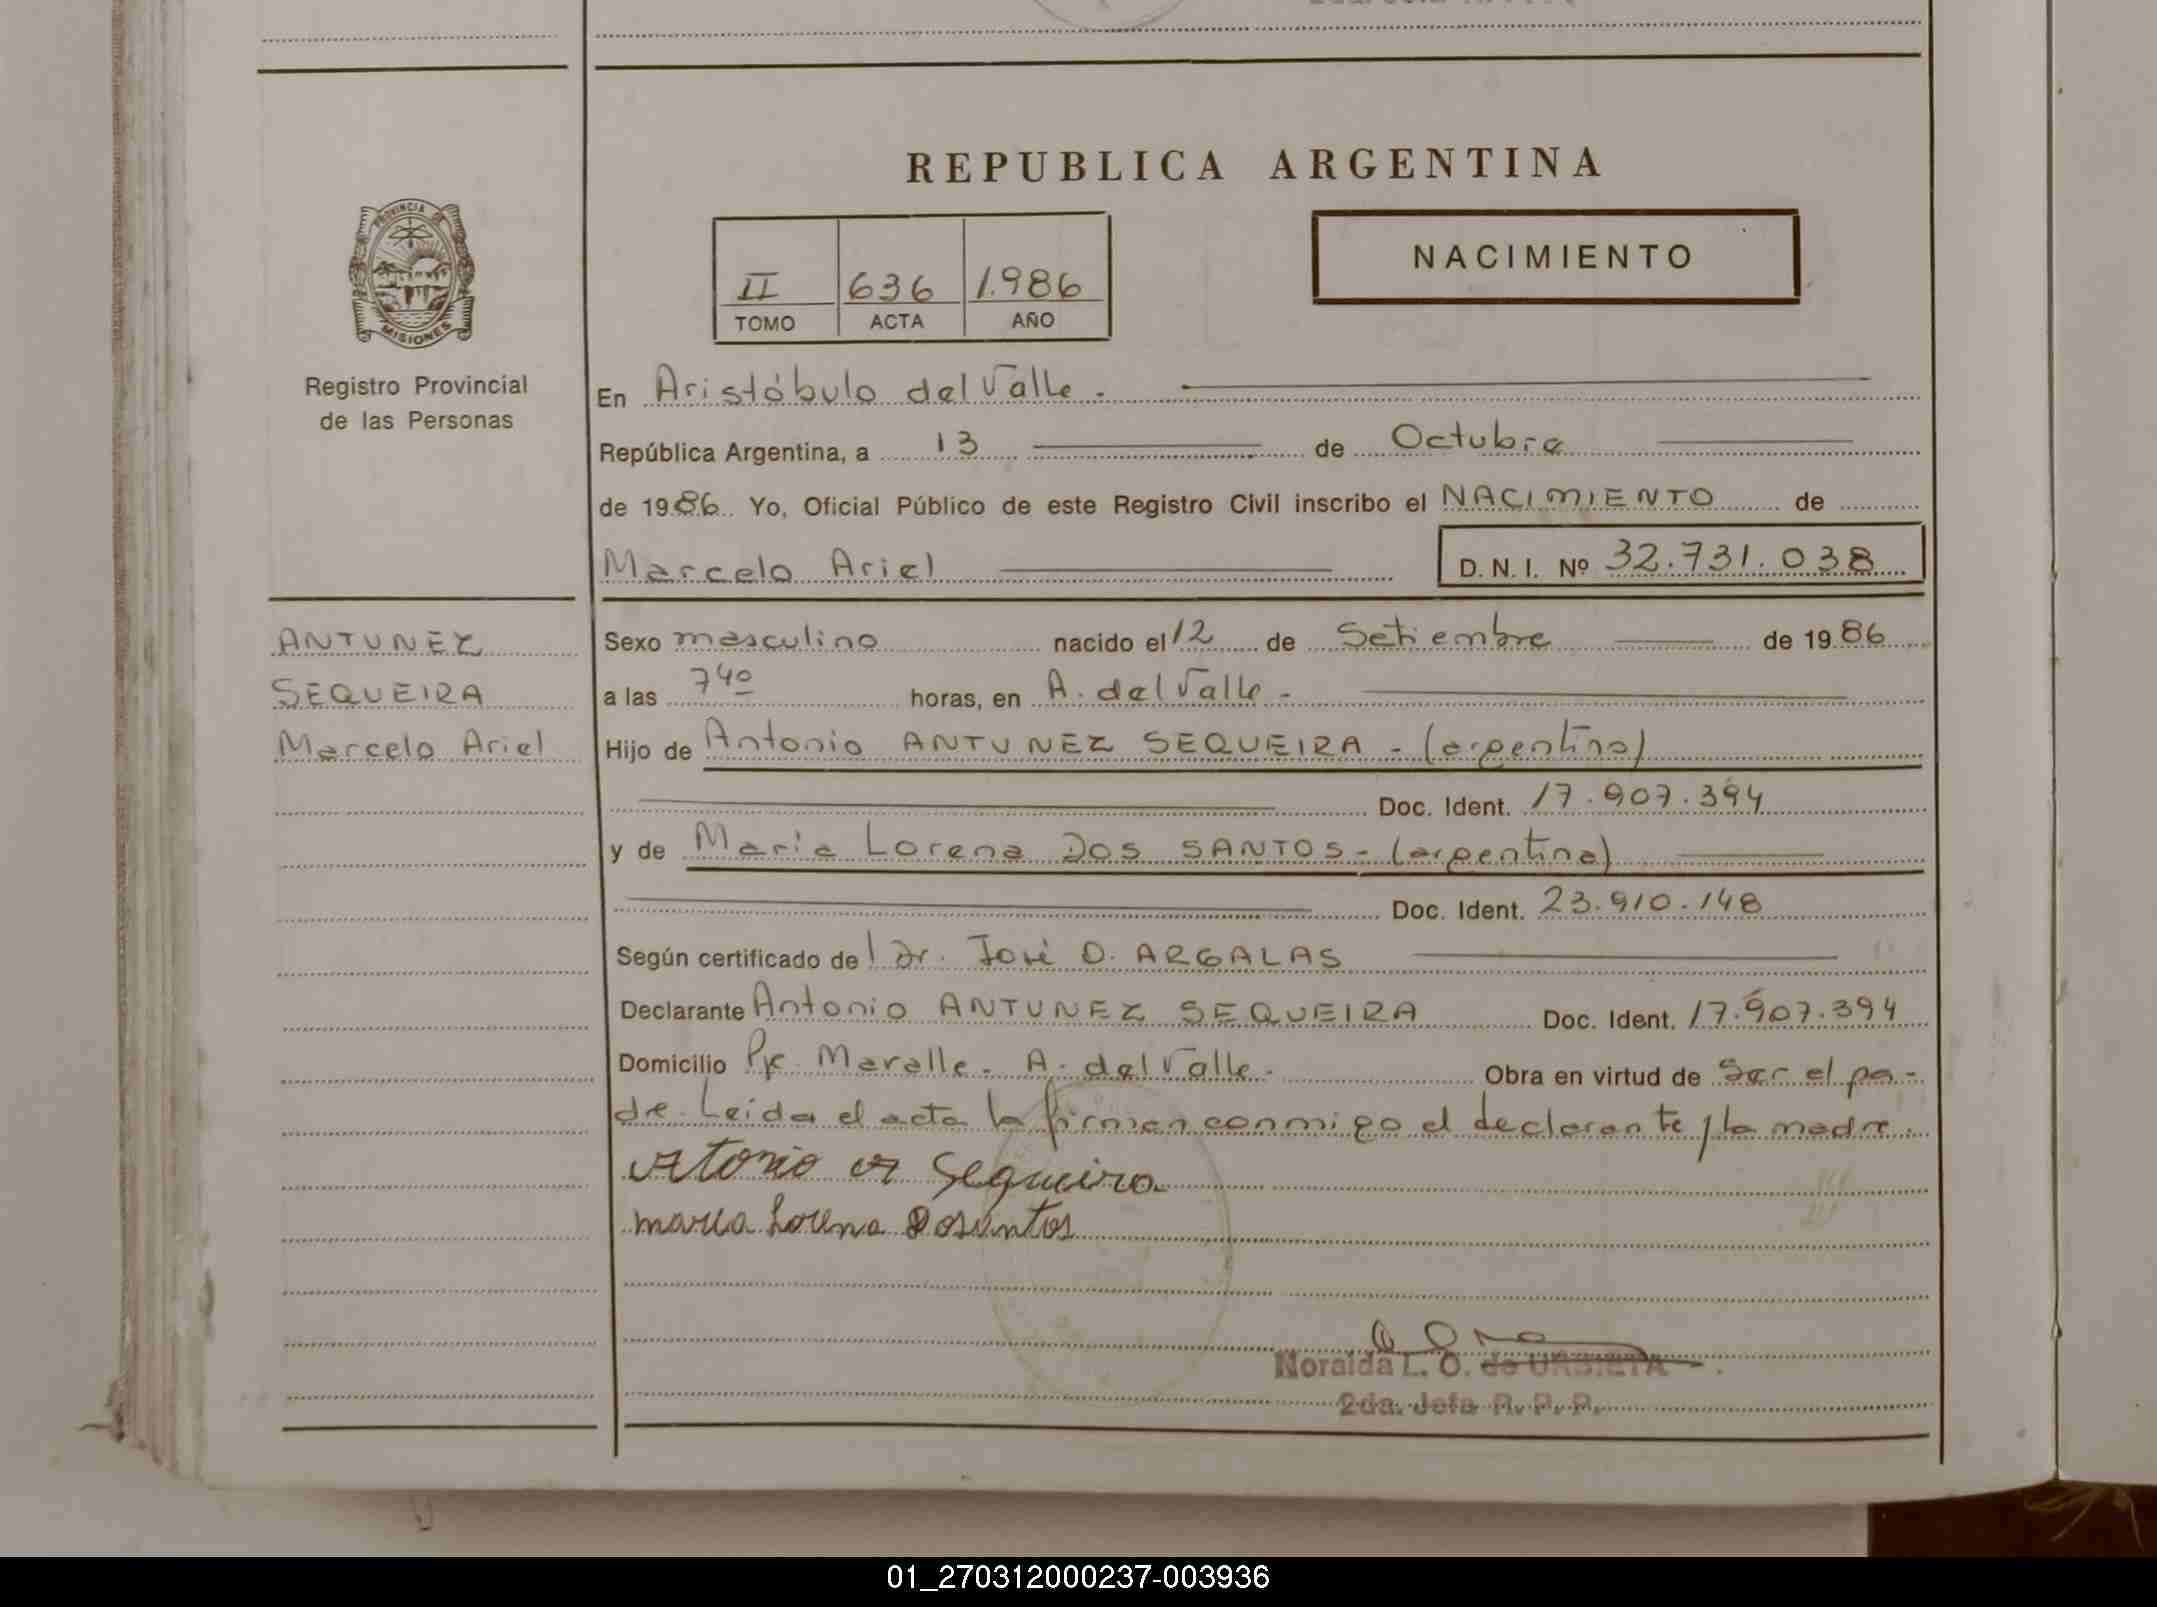 REPUBLICA ARGENTINA
PROVINCIA DE
MISIONES
Registro Provincial
de las Personas
II 636 1.986
TOMO ACTA AÑO
NACIMIENTO
En Aristóbulo del Valle.
República Argentina, a 13 de Octubre
de 1986. Yo, Oficial Público de este Registro Civil inscribo el NACIMIENTO de
Marcelo Ariel D.N.I. Nº 32.731.038
ANTUNEZ
SEQUEIRA
Marcelo Ariel
Sexo masculino nacido el 12 de Setiembre de 1986
a las 740 horas, en A. del Valle -
Hijo de Antonio ANTUNEZ SEQUEIRA - (argentino)
Doc. Ident. 17.907.394
y de María Lorena DOS SANTOS - (argentina)
Doc. Ident. 23.910.148
Según certificado del Dr. José D. ARGALAS
Declarante Antonio ANTUNEZ SEQUEIRA Doc. Ident. 17.907.394
Domicilio Pje. Maralle - A. del Valle. Obra en virtud de ser el pa-
dre. Leida el acta la firman conmigo el declarante y la madre.
Atonio A Sequeira
maria Lorena Dosantos
Noraida L. O. de URBIETA
2da. Jefa R. P. P.
01_270312000237-003936